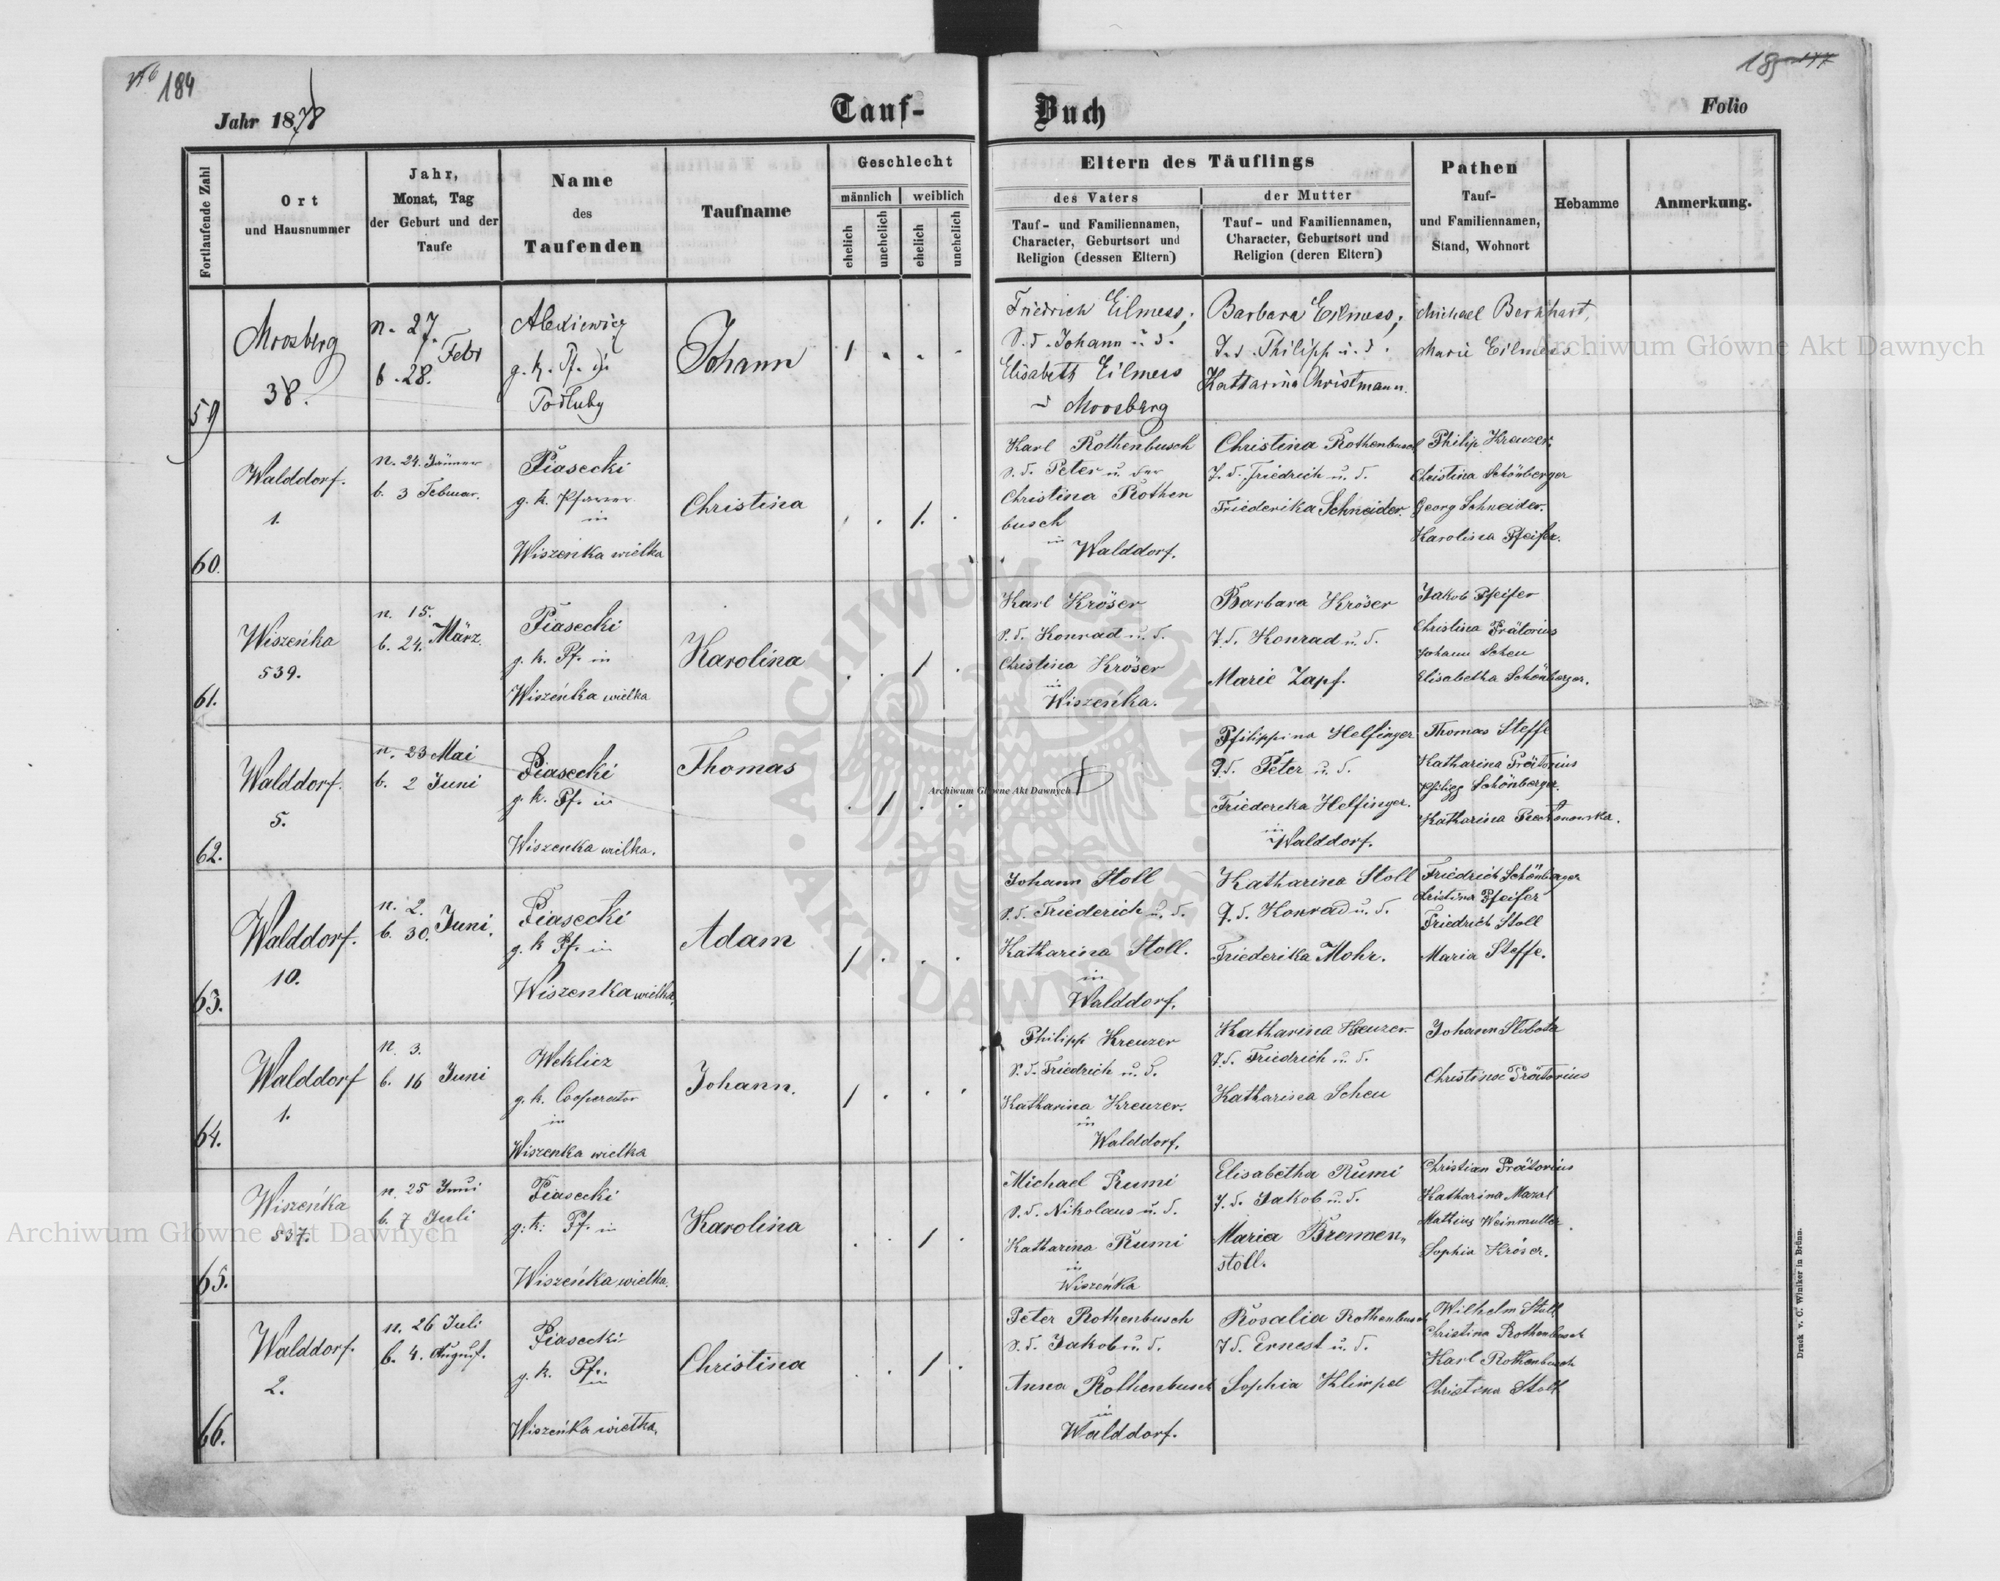 184
185
Jahr 1878
Tauf-
Buch
Folio
Fortlaufende Zahl
Ort
und Hausnummer
Jahr,
Monat, Tag
der Geburt und der
Taufe
Name
des
Taufenden
Taufname
Geschlecht
männlich
weiblich
ehelich
unehelich
ehelich
unehelich
Eltern des Täuflings
des Vaters
Tauf- und Familiennamen,
Character, Geburtsort und
Religion (dessen Eltern)
der Mutter
Tauf- und Familiennamen,
Character, Geburtsort und
Religion (deren Eltern)
Pathen
Tauf-
und Familiennamen,
Stand, Wohnort
Hebamme
Anmerkung.
59
Moosberg
38.
n. 27.
Febr
b. 28.
g. k. Pf. in
Johann
1
Friedrich Eilmess,
S. d. Johann u. d.
Elisabeth Eilmess
Moosberg
Barbara Eilmess,
T. d. Philipp u. d.
Katharina Christmann.
Michael Berkhart,
Marie Eilmess
60.
Walddorf.
1.
n. 24. Jänner
b. 3 Februar.
Piasecki
g. k. Pfarrer
in
Wiszeńka wielka
Christina
1.
Karl Rothenbusch
S. d. Peter u. der
Christina Rothen
busch
in
Walddorf.
Christina Rothenbusch
T. d. Friedrich u. d.
Friederika Schneider.
Philip Kreuzer
Christina Schönberger
Georg Schneider.
Karolina Pfeifer.
61.
Wiszeńka
539.
n. 15.
b. 24. März.
Piasecki
g. k. Pf. in
Wiszeńka wielka
Karolina
1
Karl Kröser
S. d. Konrad u. d.
Christina Kröser
in
Wiszeńka.
Barbara Kröser
T. d. Konrad u. d.
Marie Zapf.
Jakob Pfeifer
Christina Prätorius
Johann Scheu
Elisabetha Schönberger.
62.
Walddorf.
5.
n. 23 Mai
b. 2 Juni
Piasecki
g. k. Pf. in
Wiszenka wielka.
Thomas
1
Philippina Helfinger
T. d. Peter u. d.
Friedericka Helfinger.
in
Walddorf.
Thomas Steffe
Katharina Prätorius
Philipp Schönberger.
Katharina
63.
Walddorf.
10.
n. 2.
b. 30. Juni.
Piasecki
g. k. Pf. in
Wiszenka wielka.
Adam
1
Johann Stoll
S. d. Friederich u. d.
Katharina Stoll.
in
Walddorf.
Katharina Stoll
T. d. Konrad u. d.
Friederika Mohr.
Friedrich Schönberger
Christina Pfeifer
Friedrich Stoll
Maria Steffe.
64.
Walddorf
1.
n. 3.
b. 16 Juni
Weklicz
g. k. Cooperator
in
Wiszenka wielka
Johann.
1
Philipp Kreuzer
S. d. Friedrich u. d.
Katharina Kreuzer.
in
Walddorf.
Katharina Kreuzer
T. d. Friedrich u. d.
Katharina Scheu
Johann Sloboda
Christina Prätorius
65.
Wiszeńka
537.
n. 25 Juni
b. 7 Juli
Piasecki
g. k. Pf. in
Wiszeńka wielka.
Karolina
1
Michael Rumi
S. d. Nikolaus u. d.
Katharina Rumi
in
Wiszeńka
Elisabetha Rumi
T. d. Jakob u. d.
Maria Bremen„
stoll.
Christian Prätorius
Katharina Mazal
Mathias Weinmuller.
Sophia Kröser.
66.
Walddorf.
2.
n. 26 Juli
b. 4. August.
Piasecki
g. k. Pf.
in
Wiszeńka wielka.
Christina
1
Peter Rothenbusch
S. d. Jakob u. d.
Anna Rothenbusch
in
Walddorf.
Rosalia Rothenbusch
T. d. Ernest u. d.
Sophia Klimpel
Wilhelm Stoll
Christina Rothenbusch
Karl Rothenbusch
Christina Stoll
Druck v. C. Winiker in Brünn.
Archiwum Główne Akt Dawnych
Archiwum Główne Akt Dawnych
Archiwum Główne Akt Dawnych
ARCHIWUM GŁÓWNE AKT DAWNYCH